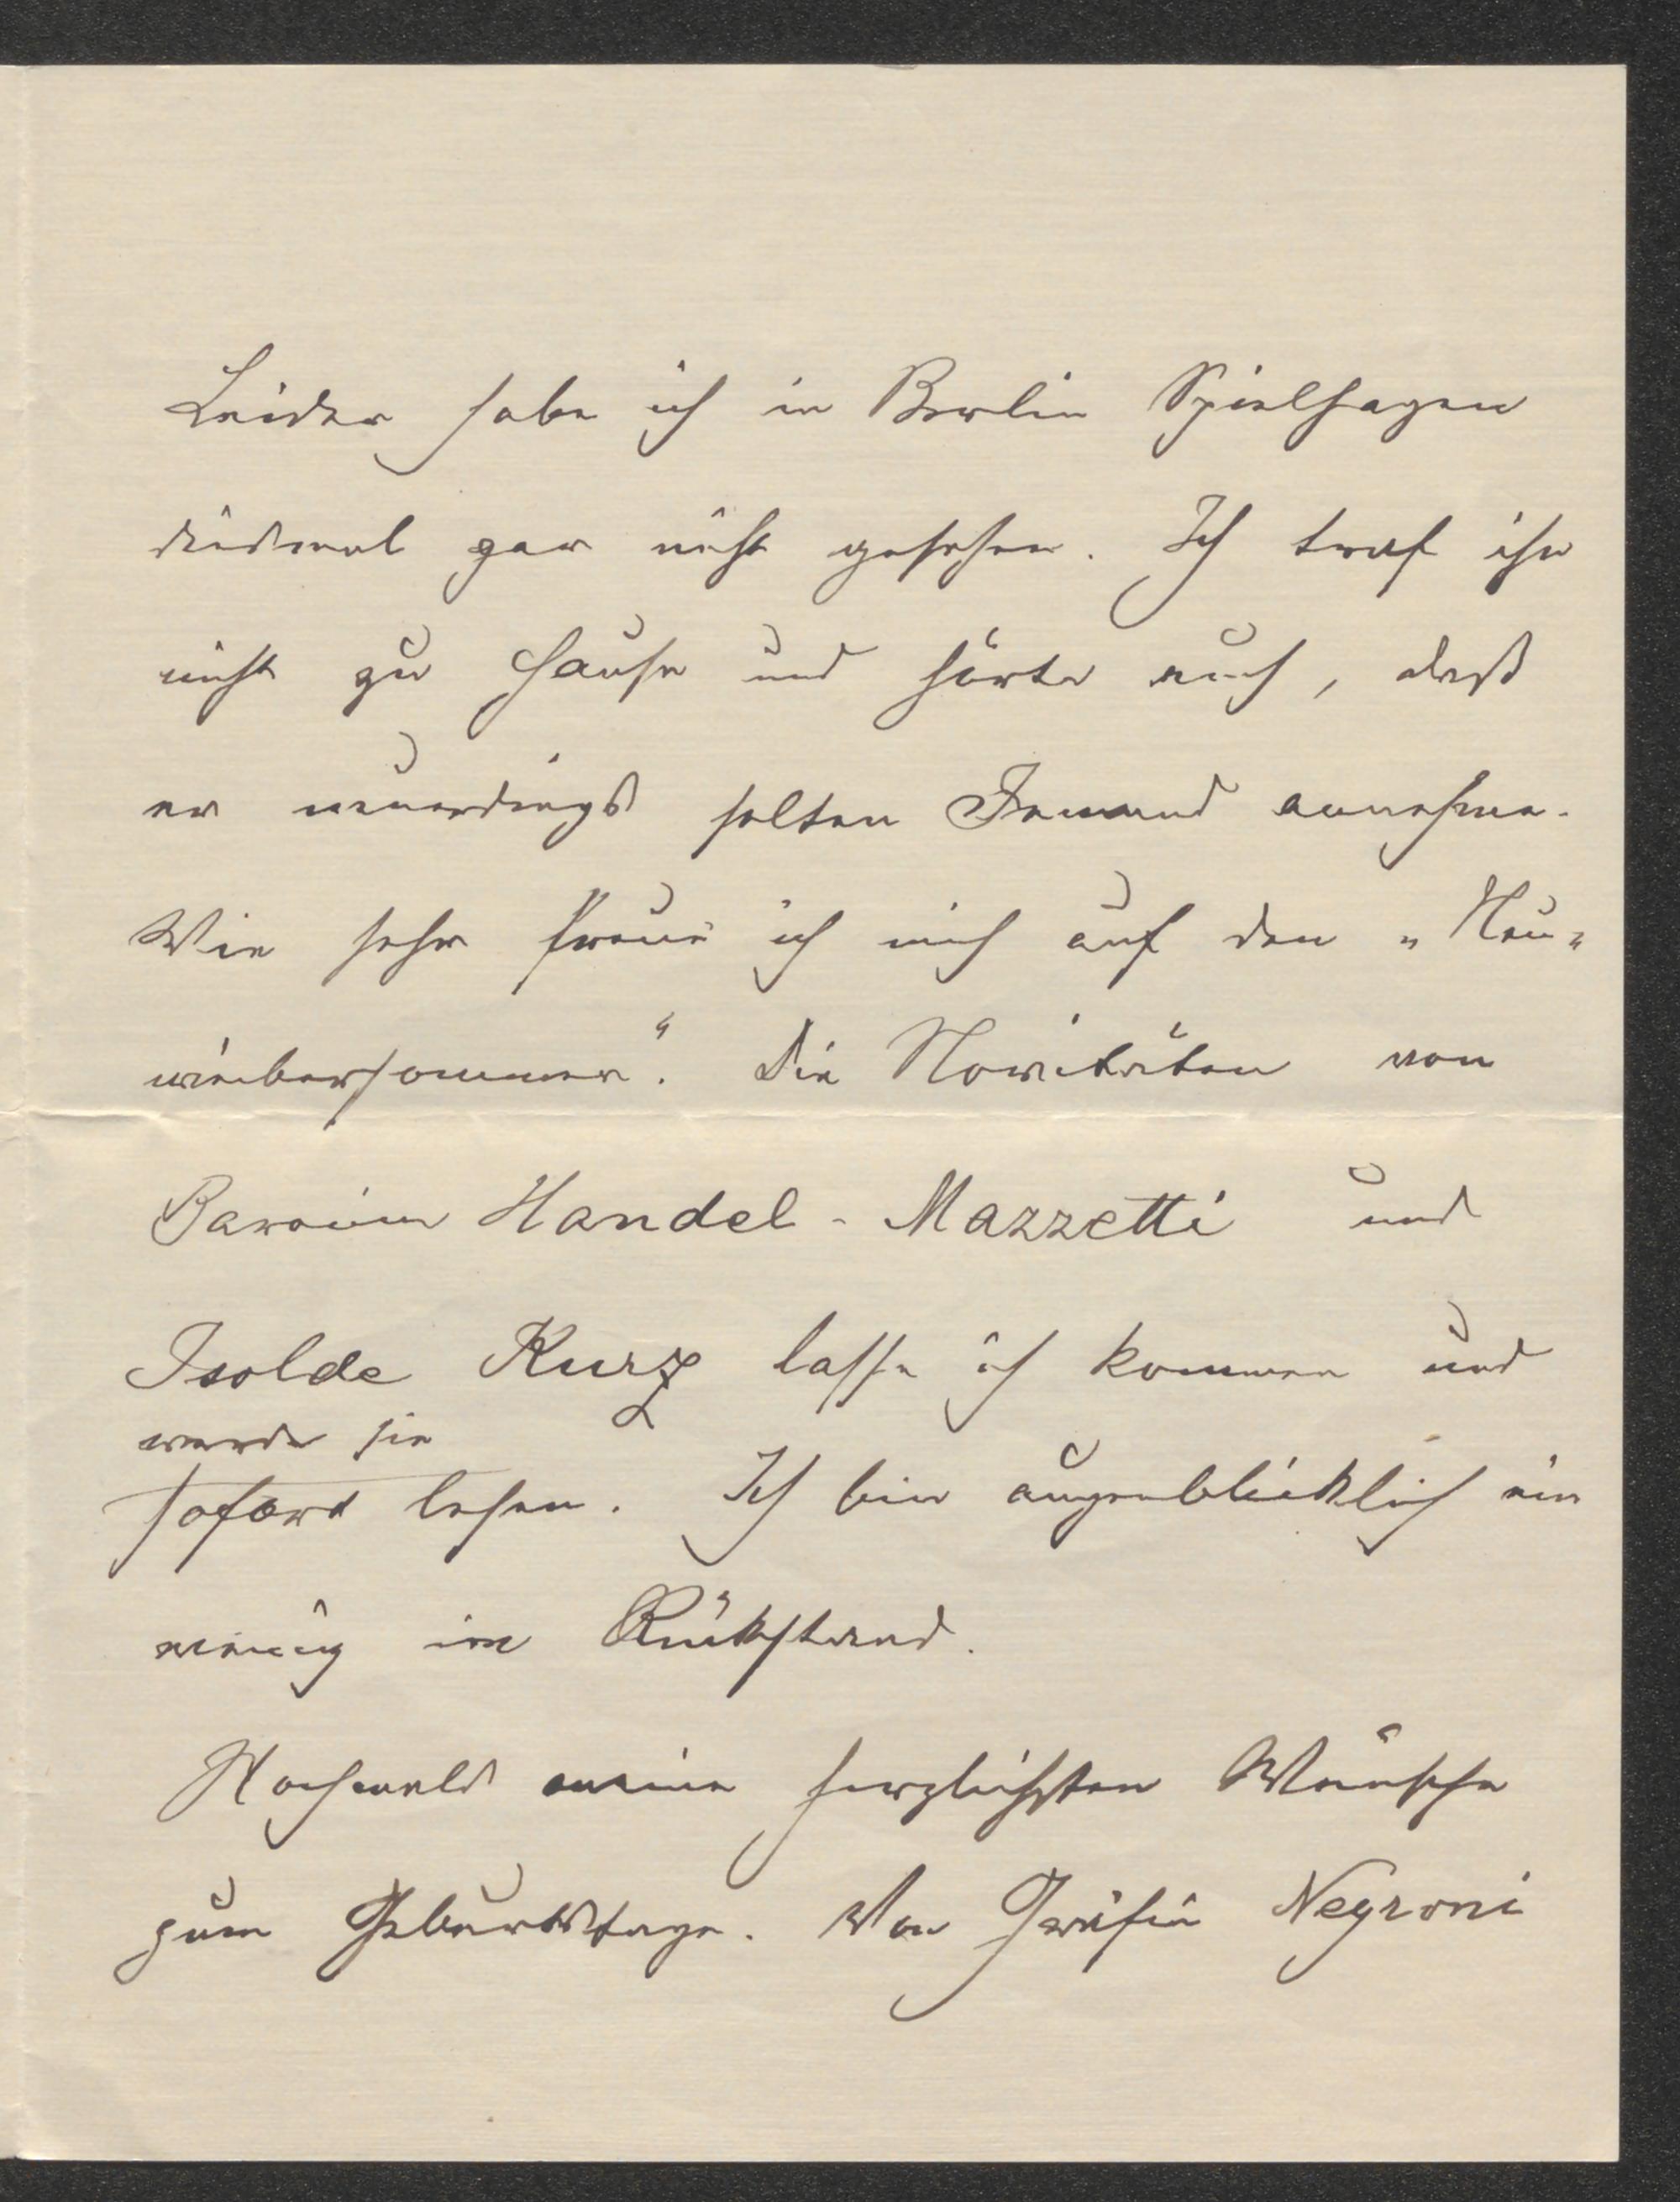 Leider habe ich in Berlin Spielhagen
diesmal gar nicht gesehen. Ich traf ihn
nicht zu Hause und hörte auch, daß
er neuerdings selten Jemand annehme.
Wie sehr freue ich mich auf den „Neu-
weibersommer“. Die Novitäten von
Baronin Handel-Mazzetti und
Isolde Kurz lasse ich kommen und
werde sie
sofort lesen. Ich bin augenblicklich ein
wenig im Rückstand.
Nochmals meine herzlichsten Wünsche
zum Geburtstage. Von Gräfin Negroni